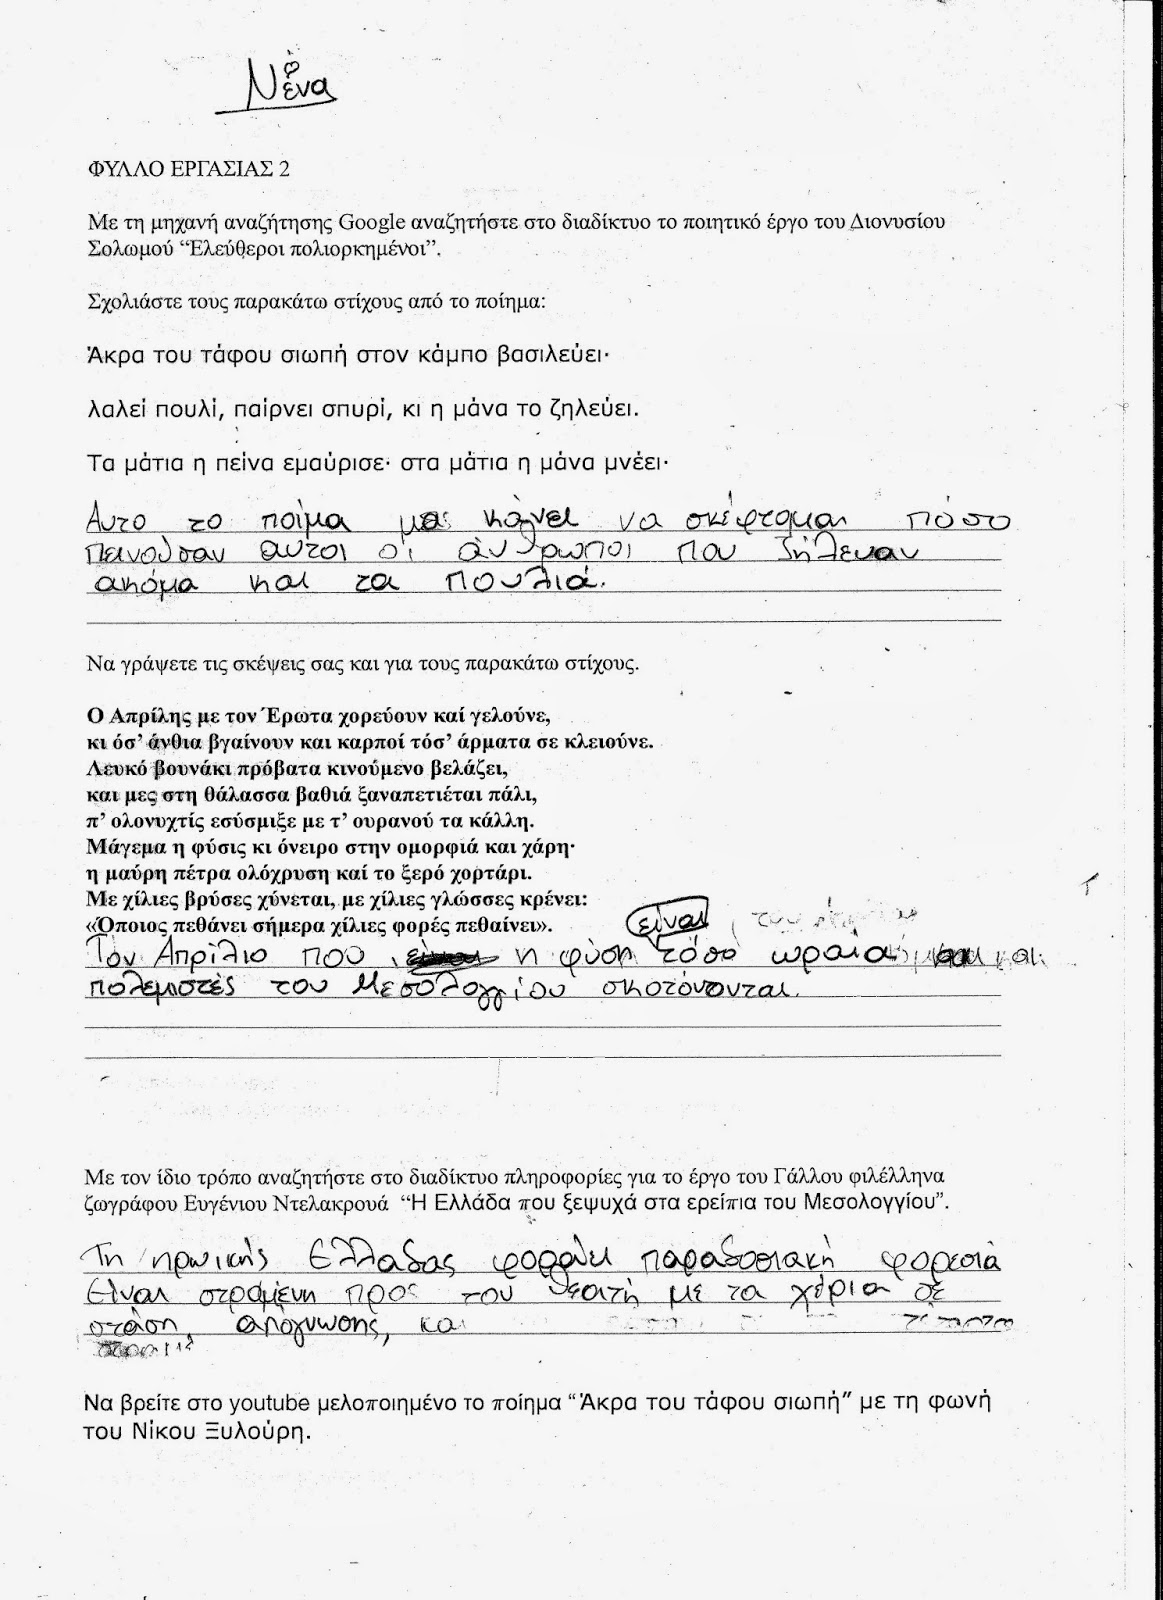 Νένα
ΦΥΛΛΟ ΕΡΓΑΣΙΑΣ 2
Με τη μηχανή αναζήτησης Google αναζητήστε στο διαδίκτυο το ποιητικό έργο του Διονυσίου
Σολωμού “Ελεύθεροι πολιορκημένοι”.
Σχολιάστε τους παρακάτω στίχους από το ποίημα:
Άκρα του τάφου σιωπή στον κάμπο βασιλεύει·
λαλεί πουλί, παίρνει σπυρί, κι η μάνα το ζηλεύει.
Τα μάτια η πείνα εμαύρισε· στα μάτια η μάνα μνέει·
Αυτο το ποίμα μας κάνει να σκέφτομαι πόσο
πεινούσαν αυτοι οι άνθρωποι που ζήλευαν
ακόμα και τα πουλιά.
Να γράψετε τις σκέψεις σας και για τους παρακάτω στίχους.
Ο Απρίλης με τον Έρωτα χορεύουν καί γελούνε,
κι όσ’ άνθια βγαίνουν και καρποί τόσ’ άρματα σε κλειούνε.
Λευκό βουνάκι πρόβατα κινούμενο βελάζει,
και μες στη θάλασσα βαθιά ξαναπετιέται πάλι,
π’ ολονυχτίς εσύσμιξε με τ’ ουρανού τα κάλλη.
Μάγεμα η φύσις κι όνειρο στην ομορφιά και χάρη·
η μαύρη πέτρα ολόχρυση καί το ξερό χορτάρι.
Με χίλιες βρύσες χύνεται, με χίλιες γλώσσες κρένει:
«Όποιος πεθάνει σήμερα χίλιες φορές πεθαίνει».
είναι
Τόν Απρίλιο που η φύση τόσο ωραια
πολεμιστές του Μεσολογγίου σκοτόνονται.
Με τον ίδιο τρόπο αναζητήστε στο διαδίκτυο πληροφορίες για το έργο του Γάλλου φιλέλληνα
ζωγράφου Ευγένιου Ντελακρουά “Η Ελλάδα που ξεψυχά στα ερείπια του Μεσολογγίου”.
Τη ηρωικής Ελλαδας φοράει παραδοσιακή φορεσιά
Είναι στραμένη προς τον θεατή με τα χέρια σε
στάση, απόγνωσης, και
Να βρείτε στο youtube μελοποιημένο το ποίημα “Άκρα του τάφου σιωπή” με τη φωνή
του Νίκου Ξυλούρη.